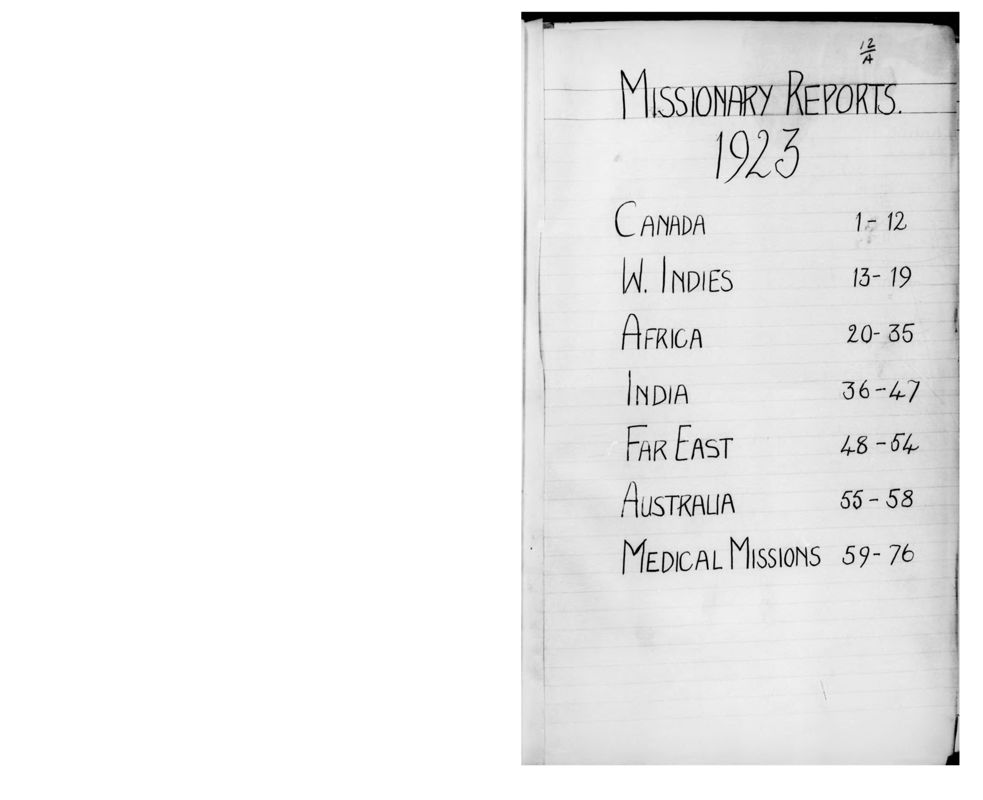 12
A
MISSIONARY REPORTS.
1923
CANADA 1- 12
W. INDIES 13- 19
AFRICA 20- 35
INDIA 36-47
FAR EAST 48-54
AUSTRALIA 55-58
MEDICAL MISSIONS 59-76